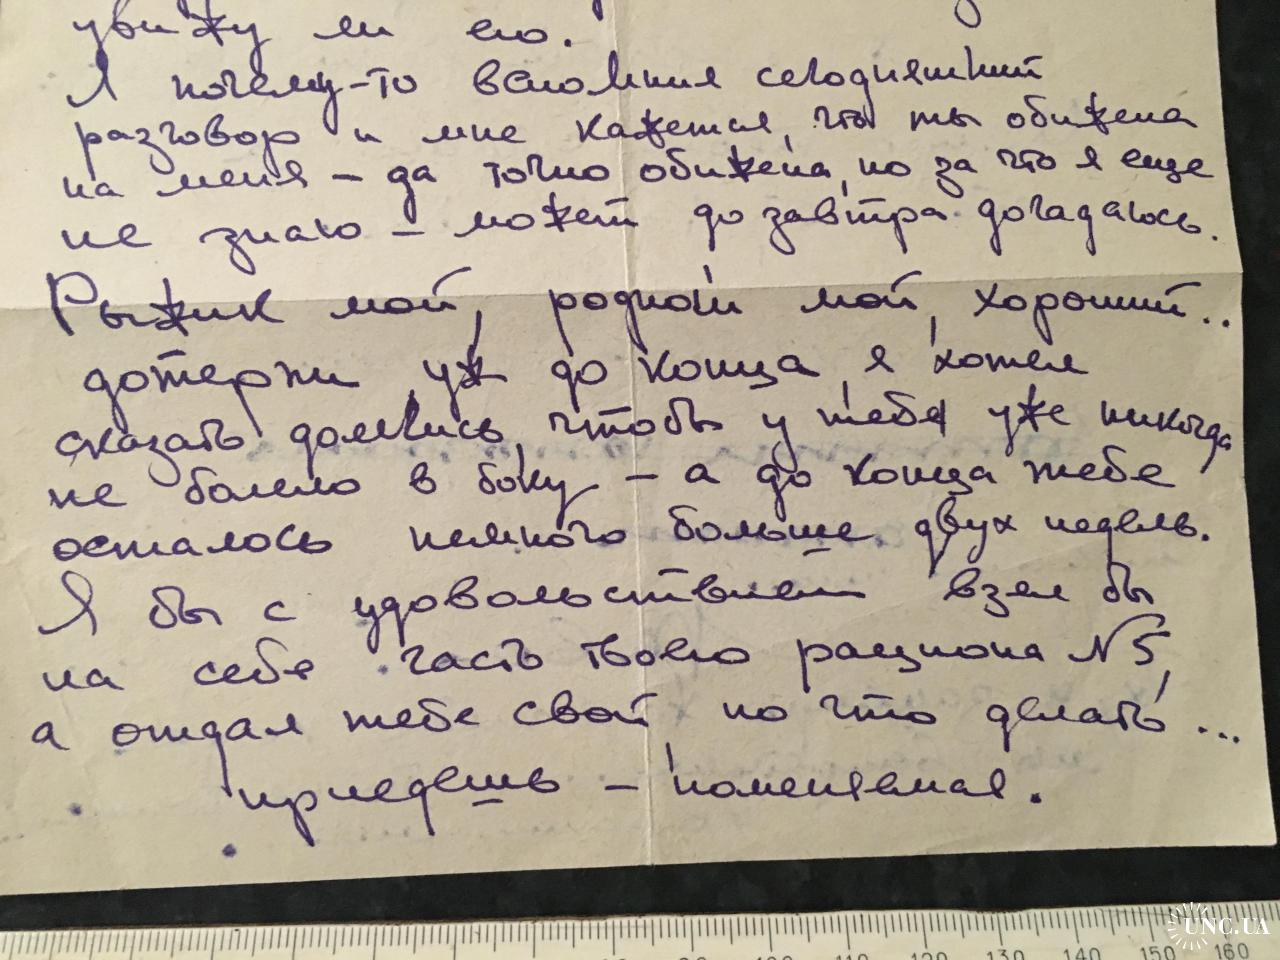 увижу ли его.
Я почему-то вспомнил сегодняшний
разговор и мне кажется, что ты обижена
на меня – да точно обижена, но за что я еще
не знаю – может до завтра догадаюсь.
Рыжик мой, родной мой, хороший..
дотерпи уж до конца, я хотел
сказать долечись чтобы у тебя уже никогда
не болело в боку – а до конца тебе
осталось немного больше двух недель.
Я бы с удовольствием взял бы
на себя часть твоего рациона №5,
а отдал тебе свой но что делать...
приедешь – поменяемся.
80 90 100 110 120 130 140 150 160
UNC.UA